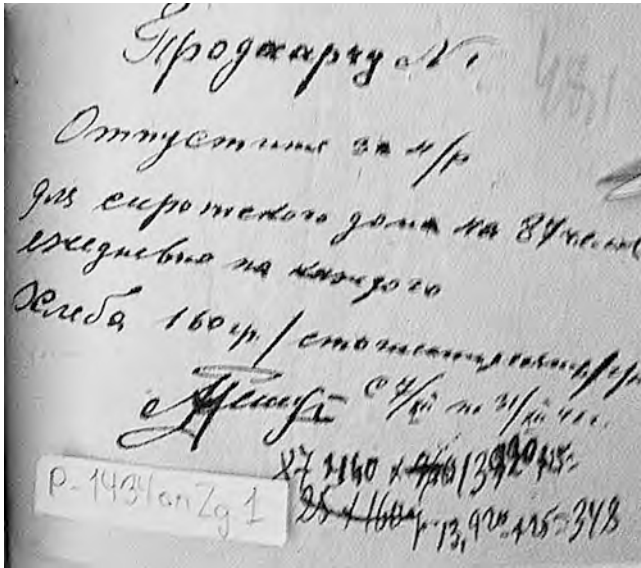 Продларьку № 1
481
Отпустите за н/р
для сиротского дома на 87 челов
ежедневно на каждого
Хлеба 160 гр. /стошестьдесят/гр
с 7/XII по 31/XII 41 г.
87 × 160 × 13,920 × 25 =
25 × 160 13,920 × 25 = 348
Р-1434 оп 2 д 1